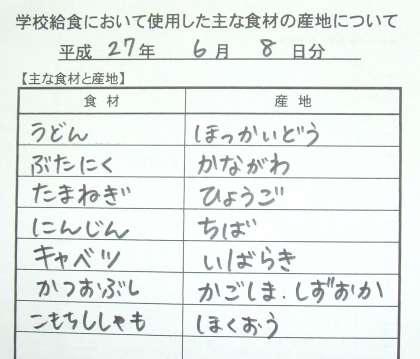 学校給食において使用した主な食材の産地について
平成 27年 6月 8日分
【主な食材と産地】
食材 産地
うどん ほっかいどう
ぶたにく かながわ
たまねぎ ひょうご
にんじん ちば
キャベツ いばらき
かつおぶし かごしま．しずおか
こもちししゃも ほくおう